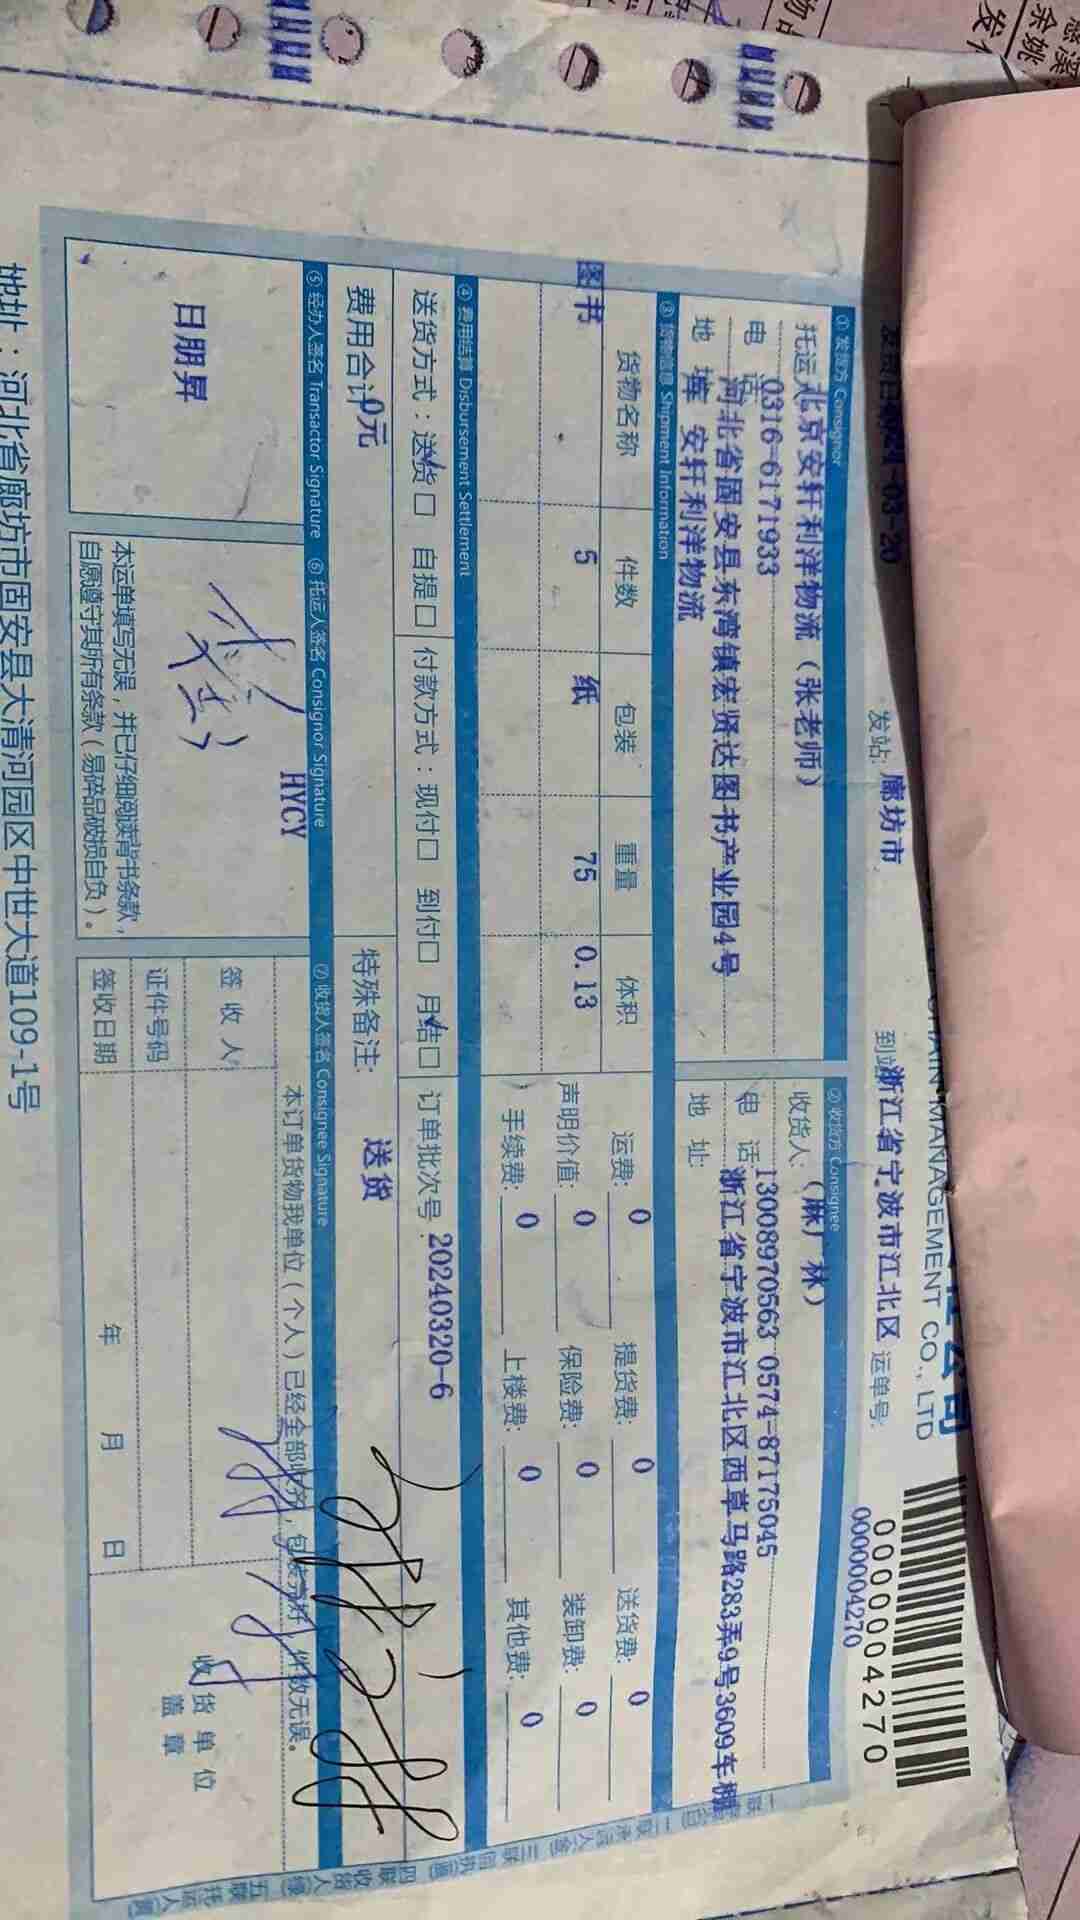 CHAIN MANAGEMENT CO., LTD
0000004270
0000004270
发站: 廊坊市 到站 浙江省宁波市江北区 运单号:
① 发货方 Consignor
托运人 北京安轩利洋物流（张老师）
电 话 0316-6171933
河北省固安县东湾镇宏贤达图书产业园4号
地 址 库 安轩利洋物流
② 收货方 Consignee
收货人: （麻广林）
电 话 13008970563 0574-87175045
浙江省宁波市江北区西草马路283弄9号3609车棚
地 址:
③ 货物信息 Shipment Information
货物名称 件数 包装 重量 体积
图书 5 纸 75 0.13
运费: 0 提货费: 0 送货费: 0
声明价值: 0 保险费: 0 装卸费: 0
手续费: 0 上楼费: 0 其他费: 0
④ 费用结算 Disbursement Settlement
送货方式: 送货☐ 自提☐ 付款方式: 现付☐ 到付☐ 月结☐ 订单批次号: 20240320-6
费用合计 0元 特殊备注: 送货
⑤ 经办人签名 Transactor Signature ⑥ 托运人签名 Consignor Signature ⑦ 收货人签名 Consignee Signature
HYCY
日朋昇
本运单填写无误，并已仔细阅读背书条款，
自愿遵守其所有条款（易碎品破损自负）。
本订单货物我单位（个人）已经全部收齐，包装完好，件数无误。
签 收 人
证件号码
签收日期 年 月 日
收货单位
盖 章
地址：河北省廊坊市固安县大清河园区中世大道109-1号